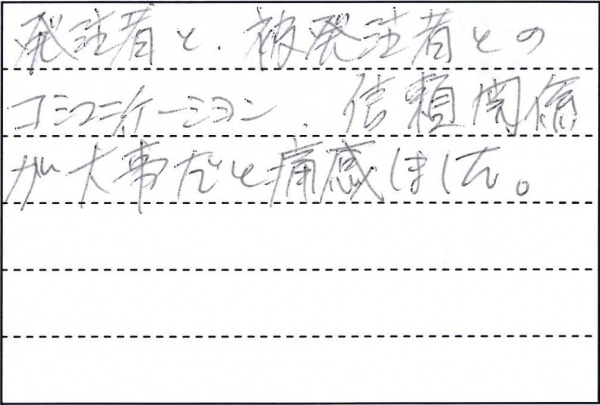 発注者と、被発注者との
コミュニケーション、信頼関係
が大事だと痛感しました。